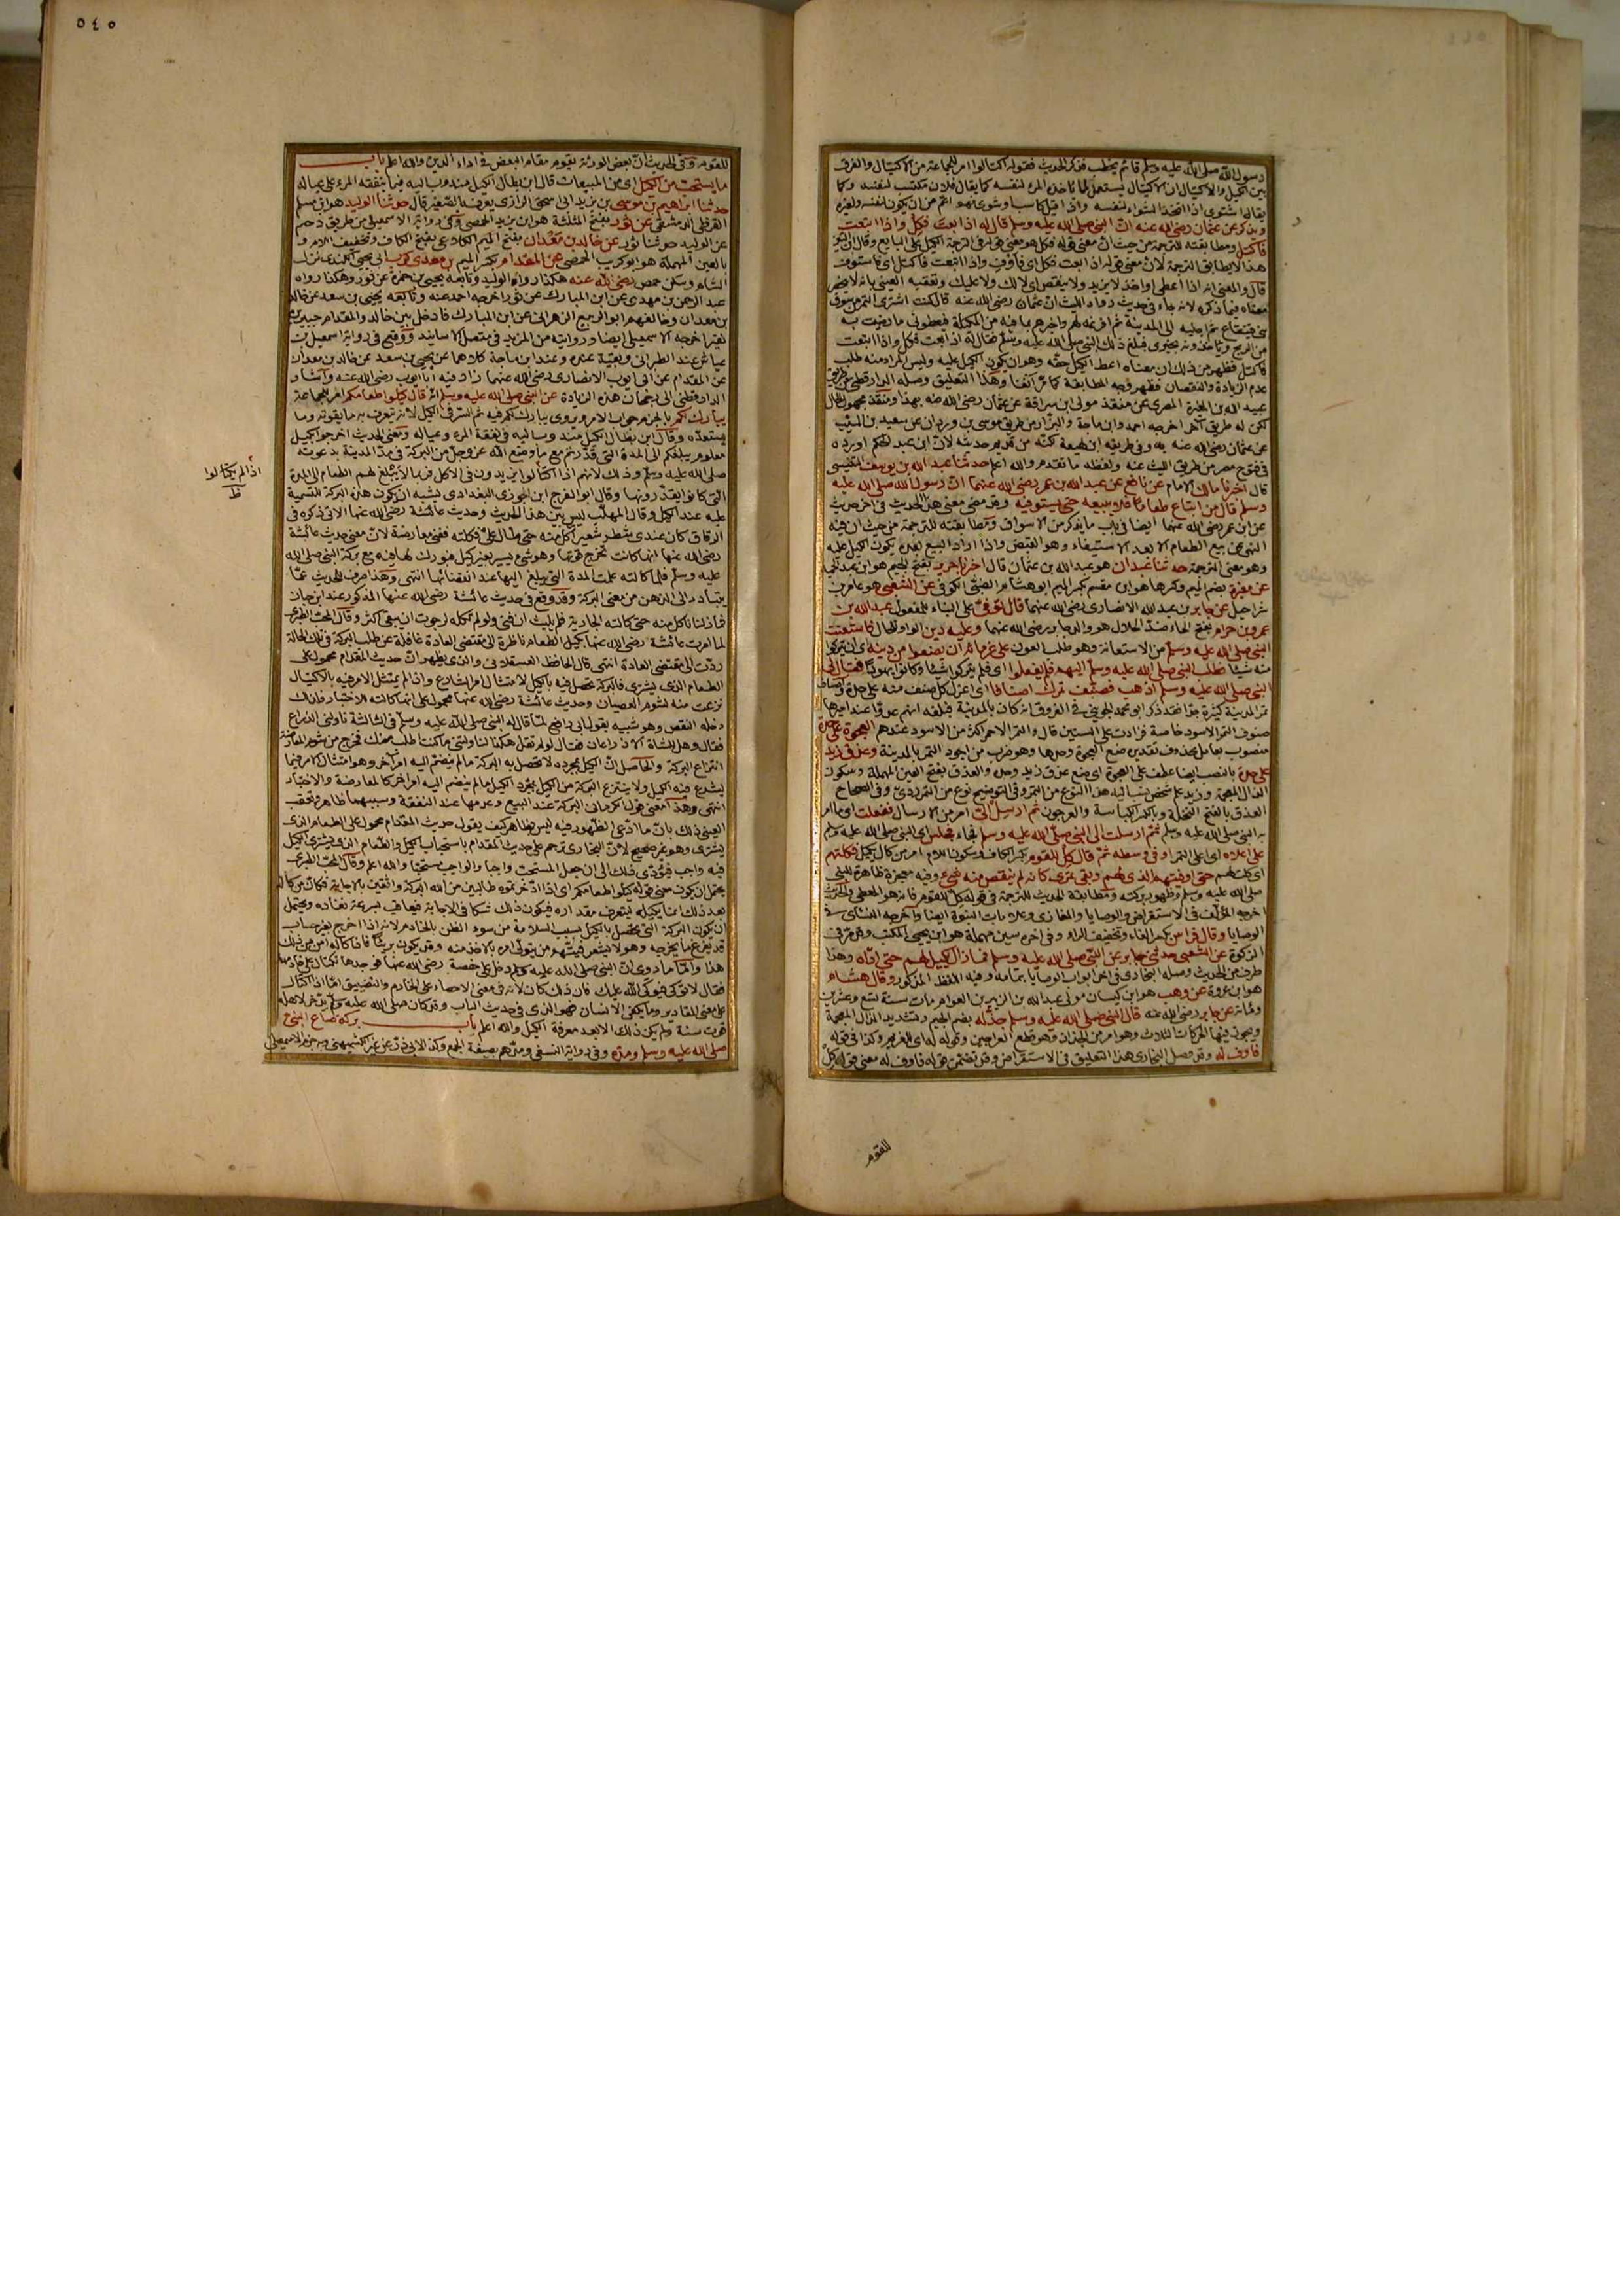 رسول الله صلى الله عليه وسلم قائم يخطب فذكر الحديث فقوله اكتالوا امر للجماعة من الاكتيال والفرق
بين الكيل والاكتيال ان الاكتيال يستعمل لما ياخذه المرء لنفسه كما يقال فلان مكتسب لنفسه وكما
يقال اشتوى اذا اتخذ الشواء لنفسه واذا قيل كاسب وشوى فهو اعم من ان يكون لنفسه ولغيره
ويذكر عن عثمان رضي الله عنه ان النبي صلى الله عليه وسلم قال له اذا بعت فكل واذا ابتعت
فاكتل ومطابقته للترجمة من حيث ان معنى قوله فكل هو معنى قوله في الترجمة الكيل على البايع وقال ابن التين
هذا لا يطابق الترجمة لان معنى قوله اذا بعت فكل اي فاوف واذا ابتعت فاكتل اي فاستوف
قال والمعنى انه اذا اعطى او اخذ لا يزيد ولا ينقص اي لا لك ولا عليك وتعقبه العيني بانه لا
معناه فيما ذكره لانه جاء في حديث رواه الليث ان عثمان رضي الله عنه قال كنت اشترى التمر من سوق
بني قينقاع ثم اجلبه الى المدينة ثم افرغه لهم واخبرهم بما فيه من المكيلة فيعطونى ما رضيت به
من الربح وياخذونه بخبرى فبلغ ذلك النبي صلى الله عليه وسلم فقال له اذا بعت فكل واذا ابتعت
فاكتل فظهر من ذلك ان معناه اعط الكيل حقه وهو ان يكون الكيل عليه وليس المراد منه طلب
عدم الزيادة والنقصان فظهر وجه المطابقة كما مر آنفا وهذا التعليق وصله الدارقطني من طريق
عبيد الله بن المغيرة المصرى عن منقذ مولى ابن سراقة عن عثمان رضي الله عنه بهذا ومنقذ مجهول الحال
لكن له طريق آخر اخرجه احمد وابن ماجة والبزار من طريق موسى بن وردان عن سعيد بن المسيب
عن عثمان رضي الله عنه به وفي طريقه ابن لهيعة لكنه من قديم حديثه لان ابن عبد الحكم اورده
في فتوح مصر من طريق الليث عنه ولفظه ما تقدم والله اعلم حدثنا عبد الله بن يوسف التنيسى
قال اخبرنا مالك الامام عن نافع عن عبد الله بن عمر رضي الله عنهما ان رسول الله صلى الله عليه
وسلم قال من ابتاع طعاما فلا يبيعه حتى يستوفيه وقد مضى معنى هذا الحديث في اخر حديث
عن ابن عمر رضي الله عنهما ايضا في باب ما يذكر من الاسواق ومطابقته للترجمة من حيث ان فيه
النهي عن بيع الطعام الا بعد الاستيفاء وهو القبض واذا اراد البيع بعده يكون الكيل عليه
وهو معنى الترجمة حدثنا عبدان هو عبد الله بن عثمان قال اخبرنا جرير بفتح الجيم هو ابن عبد الحميد
عن مغيرة بضم الميم وكسرها هو ابن مقسم بكسر الميم ابو هشام الضبي الكوفي عن الشعبي هو عامر بن
شراحيل عن جابر بن عبد الله الانصارى رضي الله عنهما قال توفى على البناء للمفعول عبد الله بن
عمرو بن حرام بفتح الحاء ضد الحلال هو والد جابر رضي الله عنهما وعليه دين الواو للحال فاستعنت
النبي صلى الله عليه وسلم من الاستعانة وهو طلب العون على غرمائه ان يضعوا من دينه اي ان يتركوا
منه شيئا فطلب النبي صلى الله عليه وسلم اليهم فلم يفعلوا اي فلم يتركوا شيئا وكانوا يهودا فقال لي
النبي صلى الله عليه وسلم اذهب فصنف تمرك اصنافا اي اعزل كل صنف منه على حدة
تمر المدينة كثيرة جدا فقد ذكر ابو محمد الجوينى في الفروق انه كان بالمدينة فبلغه انهم عدوا عند اميرها
صنوف التمر الاسود خاصة فزادت على الستين قال والتمر الاحمر اكثر من الاسود عندهم العجوة على حدة
منصوب بعامل محذوف تقديره ضع العجوة وحدها وهو ضرب من اجود التمر بالمدينة وعذق زيد
على حدة بالنصب ايضا عطف على العجوة اي ضع عذق زيد وحده والعذق بفتح العين المهملة وسكون
الذال المعجمة وزيد علم شخص نسب اليه هذا النوع من التمر وفي التوضيح نوع من التمر ردئ وفي الصحاح
العذق بالفتح النخلة وبالكسر الكباسة والعرجون ثم ارسل الى امر من الارسال ففعلت اي ما امر
به النبي صلى الله عليه وسلم ثم ارسلت الى النبي صلى الله عليه وسلم فجاء فجلس اي النبي صلى الله عليه وسلم
على اعلاه اي اعلى التمر او في وسطه ثم قال كل للقوم بكسر الكاف وسكون اللام امر من كال يكيل فكلتهم
اي كلت لهم حتى اوفيتهم الذى لهم وبقى تمرى كانه لم ينقص منه شئ وفيه معجزة ظاهرة للنبي
صلى الله عليه وسلم وظهور بركته ومطابقة الحديث للترجمة في قوله كل للقوم فانه هو المعطى والحديث
اخرجه المؤلف في الاستقراض والوصايا والمغازى وعلامات النبوة ايضا واخرجه النسائى في
الوصايا وقال فراس بكسر الفاء وتخفيف الراء وفي اخره سين مهملة هو ابن يحيى المكتب وقد مر في
الزكوة عن الشعبي حدثني جابر عن النبي صلى الله عليه وسلم فما زال يكيل لهم حتى اداه وهذا
طرف من الحديث وصله البخارى في اخر ابواب الوصايا بتمامه وفيه اللفظ المذكور وقال هشام
هو ابن عروة عن وهب هو ابن كيسان مولى عبد الله بن الزبير بن العوام مات سنة تسع وعشرين
ومائة عن جابر رضي الله عنه قال النبي صلى الله عليه وسلم جذ له بضم الجيم وتشديد الذال المعجمة
ويجوز فيها الحركات الثلاث وهو امر من الجذاذ وهو قطع العراجين وقوله له اي للغريم وكذا في قوله
فاوف له وقد وصل البخارى هذا التعليق في الاستقراض وقد تضمن قوله فاوف له معنى قوله كل
للقوم
٥٤٠
للقوم وفي الحديث ان بعض الورثة يقوم مقام البعض في اداء الدين والله اعلم باب
ما يستحب من الكيل اي من المبيعات قال ابن بطال الكيل مندوب اليه فيما ينفقه المرء على عياله
حدثنا ابراهيم بن موسى بن يزيد ابى اسحق الرازى يعرف بالصغير قال حدثنا الوليد هو ابن مسلم
القرشى الدمشقى عن ثور بفتح المثلثة هو ابن يزيد الحمصى وفي رواية الاسمعيلى من طريق دحيم
عن الوليد حدثنا ثور عن خالد بن معدان بفتح الميم الكلاعى بفتح الكاف وتخفيف اللام و
بالعين المهملة هو ابو كريب الحمصى عن المقدام بكسر الميم بن معدى كرب ابى يحيى الكندى نزل
الشام وسكن حمص رضي الله عنه هكذا رواه الوليد وتابعه يحيى بن حمزة عن ثور وهكذا رواه
عبد الرحمن بن مهدى عن ابن المبارك عن ثور اخرجه احمد عنه وتابعه يحيى بن سعد عن خالد
بن معدان وخالفهم ابو الربيع الزهرانى عن ابن المبارك فادخل بين خالد والمقدام جبير بن
نفير اخرجه الاسمعيلى ايضا وروايته من المزيد في متصل الاسانيد ووقع في رواية اسمعيل بن
عياش عند الطبرانى وبقية عنده وعند ابن ماجة كلاهما عن يحيى بن سعد عن خالد بن معدان
عن المقدام عن ابى ايوب الانصارى رضي الله عنهما زاد فيه ابا ايوب رضي الله عنه واشار
الدارقطنى الى رجحان هذه الزيادة عن النبي صلى الله عليه وسلم انه قال كيلوا طعامكم امر للجماعة
يبارك لكم بالجزم جواب الامر ويروى يبارك لكم فيه ثم السر في الكيل لانه يتعرف به ما يقوته وما
يستعده وقال ابن بطال الكيل مندوب اليه في نفقة المرء وعياله ومعنى الحديث اخرجوا بكيل
معلوم يبلغكم الى المدة التي قدرتم مع ما وضع الله عز وجل من البركة في مد المدينة بدعوته
صلى الله عليه وسلم وذلك لانهم اذا اكتالوا يزيدون في الاكل فربما لا يبلغ لهم الطعام الى المدة
اذا لم يكتالوا
ظ
التي كانوا يقدرونها وقال ابو الفرج ابن الجوزى البغدادى يشبه ان يكون هذه البركة للتسمية
عليه عند الكيل وقال المهلب ليس بين هذا الحديث وحديث عائشة رضي الله عنها الآتى ذكره في
الرقاق كان عندى شطر شعير اكل منه حتى طال على فكلته ففنى معارضة لان معنى حديث عائشة
رضي الله عنها انها كانت تخرج قوتها وهو شئ يسير بغير كيل فبورك لها فيه مع بركة النبي صلى الله
عليه وسلم فلما كالته علمت المدة التي يبلغ اليها عند انقضائها انتهى وهذا صرف للحديث عما
يتبادر الى الذهن من معنى البركة وقد وقع في حديث عائشة رضي الله عنها المذكور عند ابن حبان
فما زلنا ناكل منه حتى كالته الجارية فلم يلبث ان فنى ولو لم تكله لرجوت ان يبقى اكثر وقال المحب الطبرى
لما امرت عائشة رضي الله عنها بكيل الطعام ناظرة الى مقتضى العادة غافلة عن طلب البركة في تلك الحالة
ردت الى مقتضى العادة انتهى قال الحافظ العسقلانى والذى يظهر ان حديث المقدام محمول على
الطعام الذى يشترى فالبركة تحصل فيه بالكيل لامتثال امر الشارع واذا لم يمتثل الامر فيه بالاكتيال
نزعت منه لشؤم العصيان وحديث عائشة رضي الله عنها محمول على انها كالته للاختبار فلذلك
دخله النقص وهو شبيه بقول ابى رافع لما قال له النبي صلى الله عليه وسلم في الثالثة ناولنى الذراع
فقال وهل للشاة الا ذراعان فقال لو لم تقل هكذا لناولتنى ما كنت اطلب منك فخرج من شؤم المعارضة
انتزاع البركة والحاصل ان الكيل بمجرده لا تحصل به البركة ما لم ينضم اليه امر آخر وهو امتثال الامر فيما
يشرع فيه الكيل ولا ينتزع البركة من الكيل بمجرد الكيل ما لم ينضم اليه امر آخر كالمعارضة والاختبار
انتهى وهذا معنى قول الكرمانى البركة عند البيع وعدمها عند النفقة وسببهما ظاهر وتعقب
العينى ذلك بان ما ادعى الظهور فيه ليس بظاهر كيف يقول حديث المقدام محمول على الطعام الذى
يشترى وهو غير صحيح لان البخارى ترجم على حديث المقدام باستحباب الكيل والطعام الذى يشترى الكيل
فيه واجب فيؤدى ذلك الى ان جعل المستحب واجبا والواجب مستحبا والله اعلم وقال المحب الطبرى
يحتمل ان يكون معنى قوله كيلوا طعامكم اي اذا ادخرتموه طالبين من الله البركة واثقين بالاجابة فكان من كاله
بعد ذلك انما يكيله ليتعرف مقداره فيكون ذلك شكا في الاجابة فيعاقب بسرعة نفاده ويحتمل
ان يكون البركة التي تحصل بالكيل بسبب السلامة من سوء الظن بالخادم لانه اذا اخرج بغير حساب
قد يفرغ ما يخرجه وهو لا يشعر فيتهم من يتولى امره بالاخذ منه وقد يكون بريئا فاذا كاله امن من ذلك
هذا واما ما روى ان النبي صلى الله عليه وسلم دخل على حفصة رضي الله عنها فوجدها تكتال على خادمها
فقال لا توكى فيوكى الله عليك فان ذلك كان لانه في معنى الاحصاء على الخادم والتضييق اما اذا اكتال
على معنى المقادير وما يكفى الانسان فهو الذى في حديث الباب وقد كان صلى الله عليه وسلم يدخر لاهله
قوت سنة ولم يكن ذلك الا بعد معرفة الكيل والله اعلم باب بركة صاع النبي
صلى الله عليه وسلم ومده وفي رواية النسفى ومدهم بصيغة الجمع وكذا لابى ذر عن غير الكشميهنى وبه جزم الاسمعيلى